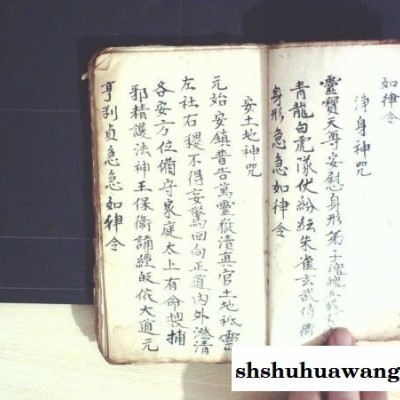 如律令
淨身神咒
靈寶天尊安慰身形弟子魂魄
青龍白虎隊仗紛紜朱雀玄武侍衛
身形急急如律令
安土地神咒
元始安鎮普告萬靈嶽瀆真官土地祇靈
左社右稷不得妄驚回向正道內外澄清
各安方位備守家庭太上有命搜捕
邪精護法神王保衛誦經皈依大道元
亨利貞急急如律令
shshuhuawang